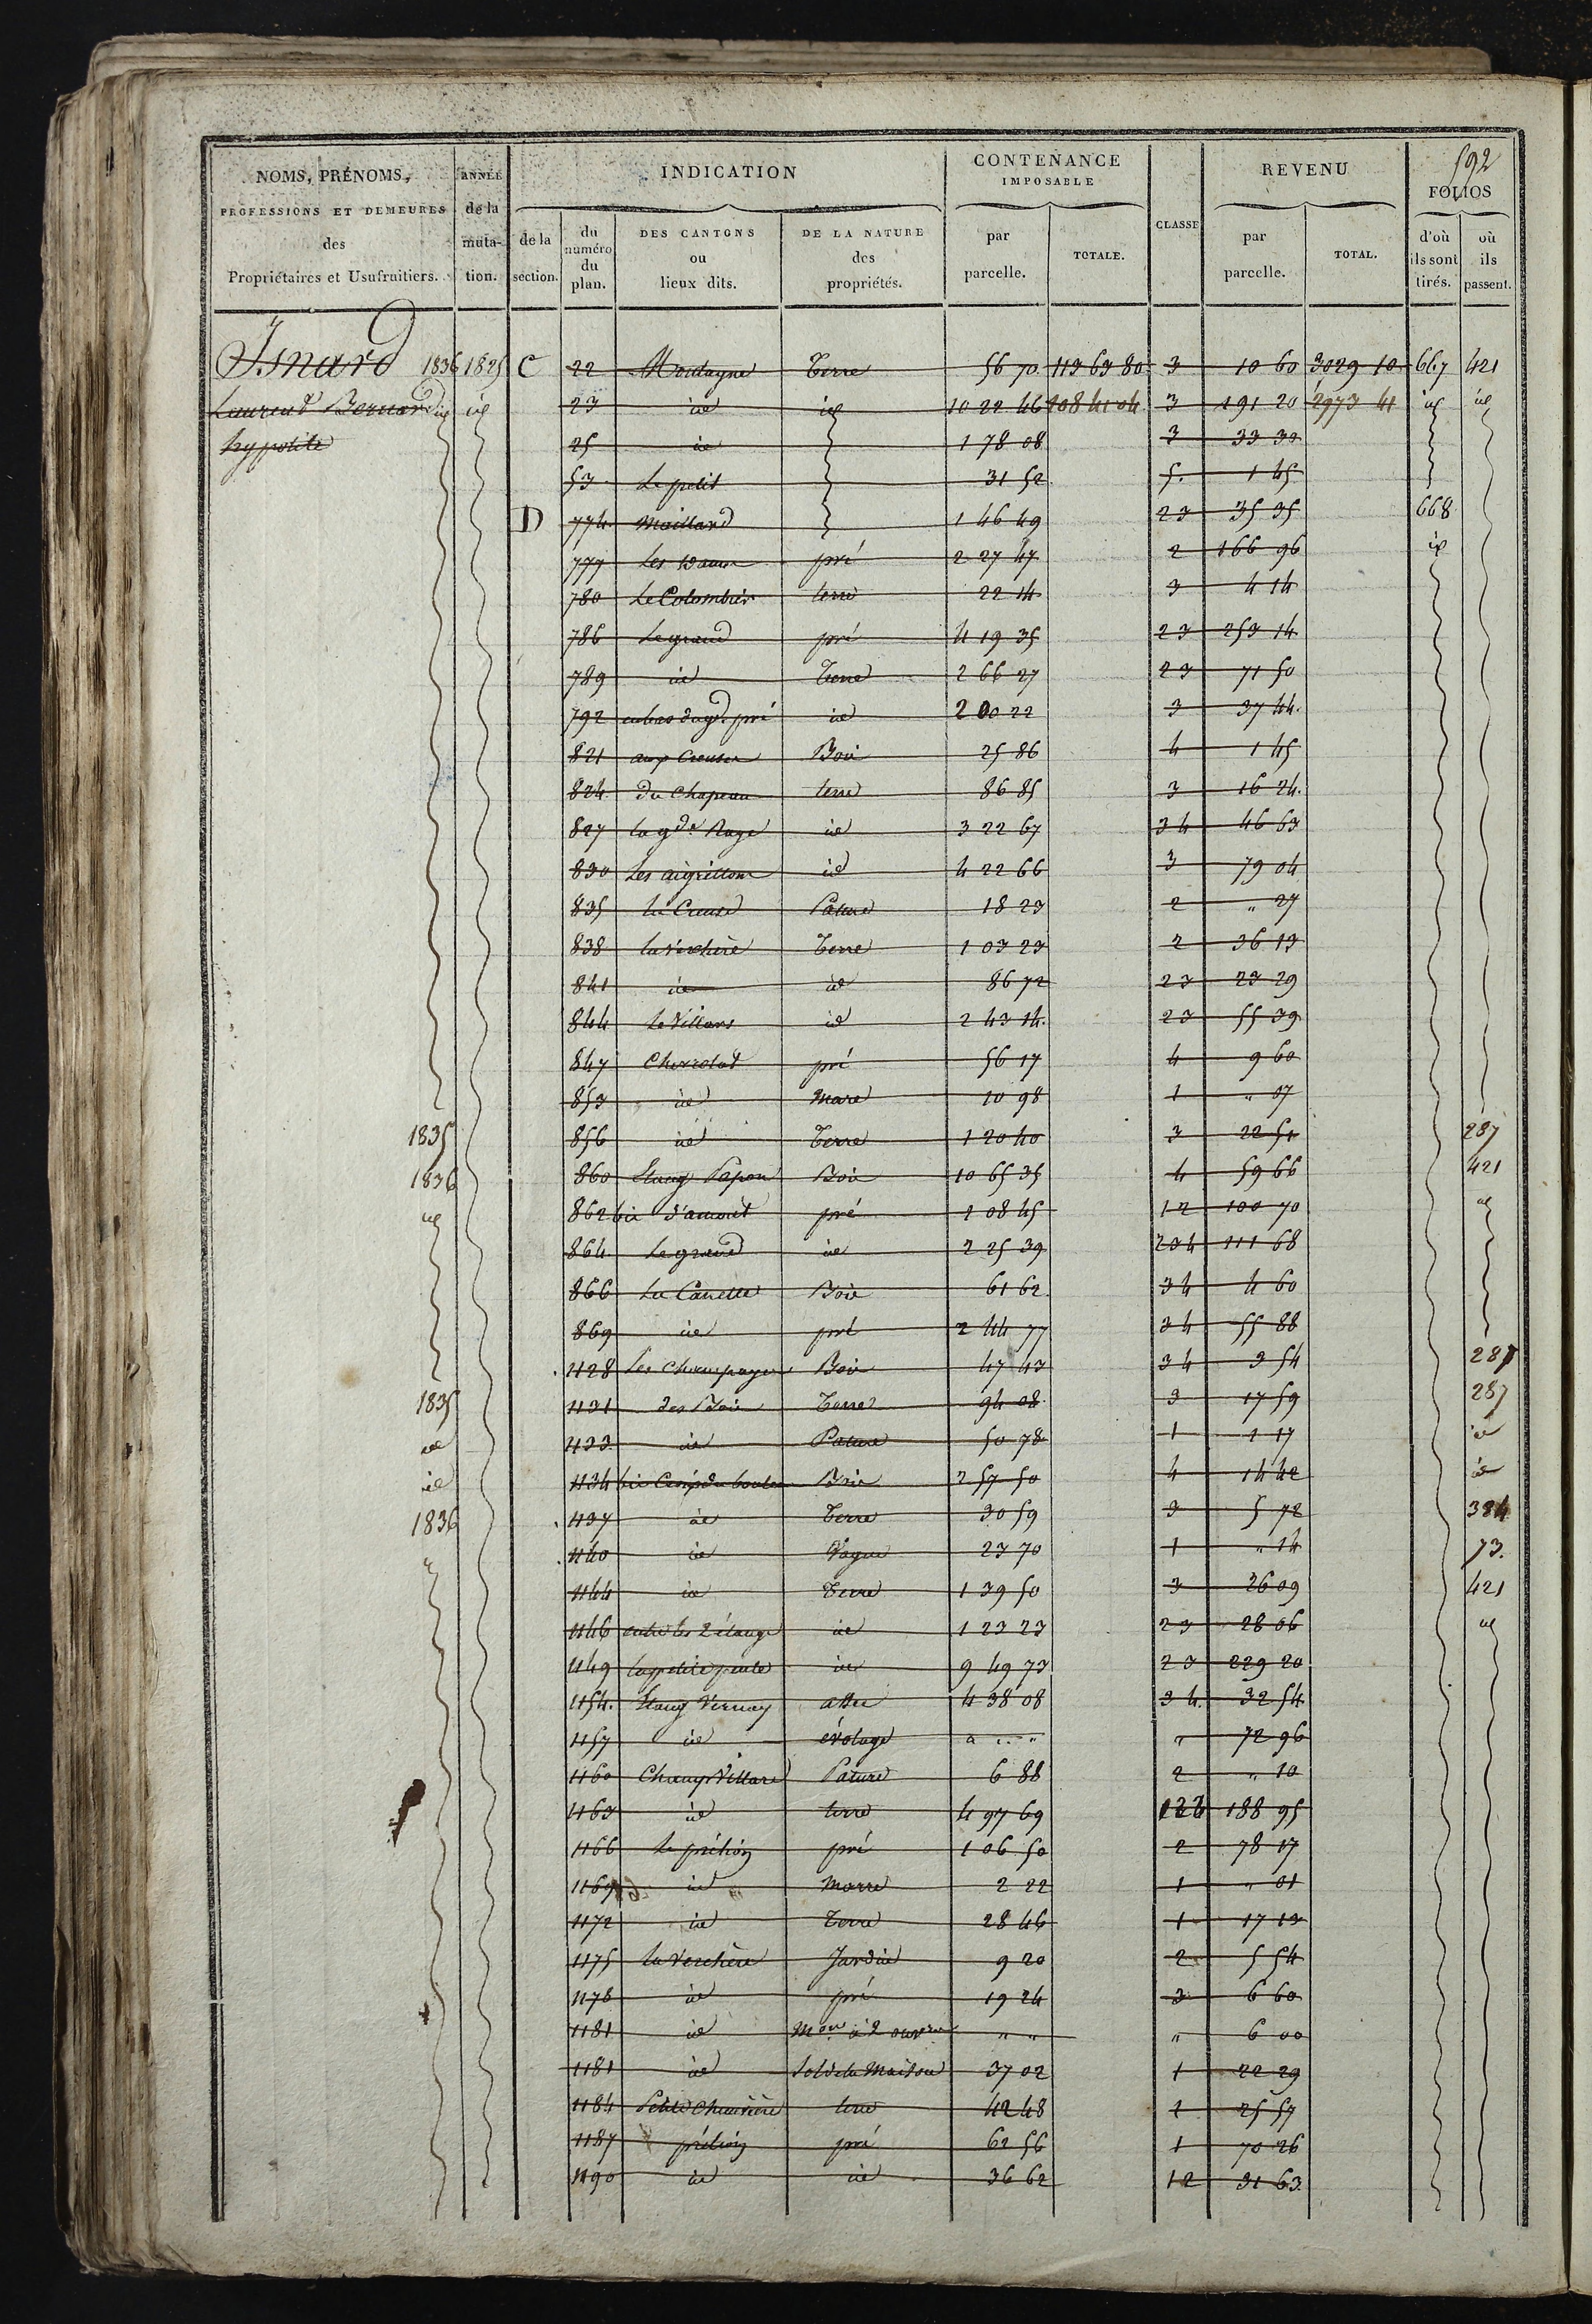 592
NOMS, PRÉNOMS, PROFESSIONS ET DEMEURES des Propriétaires et Usufruitiers.
ANNÉE de la muta- tion.
INDICATION
de la section.
du numéro du plan.
DES CANTONS ou lieux dits.
DE LA NATURE des propriétés.
CONTENANCE IMPOSABLE
par parcelle.
TOTALE.
CLASSE
REVENU
par parcelle.
TOTAL.
FOLIOS
d'où ils sont tirés.
où ils passent.
Isnard 1836 1825 C 22 Montagne Terre 56 70 113 63 80 3 10 60 3029 10 667 421
Laurent Bernard id id 23 id id 10 22 46 108 41 04 3 191 20 2973 41 id id
hypolite 25 id 1 78 08 3 33 30
53 Le petit 31 52 5 1 45
D 774 Maillard 1 46 49 23 35 35 668
777 Les pré 2 27 47 2 166 96 id
780 Le Colombier terre 22 14 3 4 14
786 Le grand pré 4 19 35 23 253 14
789 id Terre 2 66 27 23 71 50
792 au bas du gd. pré id 2 00 22 3 37 44
821 aux Creuses Bois 25 86 4 1 45
824 du Chapeau terre 86 85 3 16 24
827 la gde. Raye id 3 22 67 34 46 63
830 Les aigrillons id 4 22 66 3 79 04
835 la Creuse Pature 18 23 2 " 27
838 la Verchère Terre 1 03 23 2 36 13
841 id id 86 72 23 23 29
844 Le Villars id 2 43 14 23 55 39
847 Chevrolat pré 56 17 4 9 60
853 id Mare 10 98 1 " 07
1835 856 id Terre 1 20 40 3 22 51 287
1836 860 Etang Papon Bois 10 65 35 4 59 66 421
id 862 bis d'amont pré 1 08 45 12 100 70 id
864 Le grand id 2 25 39 234 111 68
866 La Canette Bois 61 62 34 4 60
869 id pré 2 44 77 34 55 88
1128 Les Champagnes Bois 47 43 34 3 54 287
1835 1131 des Bois Terre 94 08 3 17 59 287
id 1133 id Pature 50 78 1 1 17 id
id 1134 bis Bois 2 57 50 4 14 42 id
1836 1137 id Terre 30 59 3 5 72 384
1140 id Vague 23 70 1 " 14 73.
1144 id Terre 1 39 50 3 26 09 421
1146 entre les 2 étangs id 1 23 23 23 28 06 id
1149 la petite id 9 49 73 23 229 20
1154 Etang Vernay assec 4 38 08 34 32 54
1157 id évolage " " " " 72 96
1160 Champ Villard Pature 6 88 2 " 10
1163 id terre 4 97 69 188 95
1166 Le prélion pré 1 06 50 2 78 17
1169 id Marre 2 22 1 " 01
1172 id Terre 28 46 1 17 13
1175 la Verchère Jardin 9 20 2 5 54
1178 id pré 19 24 3 6 60
1181 id Mon. à 2 ouvres " " " 6 00
1181 id Sol de la Maison 37 02 1 22 29
1184 Petite Chenevière terre 42 48 1 25 57
1187 prélion pré 62 56 1 70 26
1190 id id 36 62 12 31 63